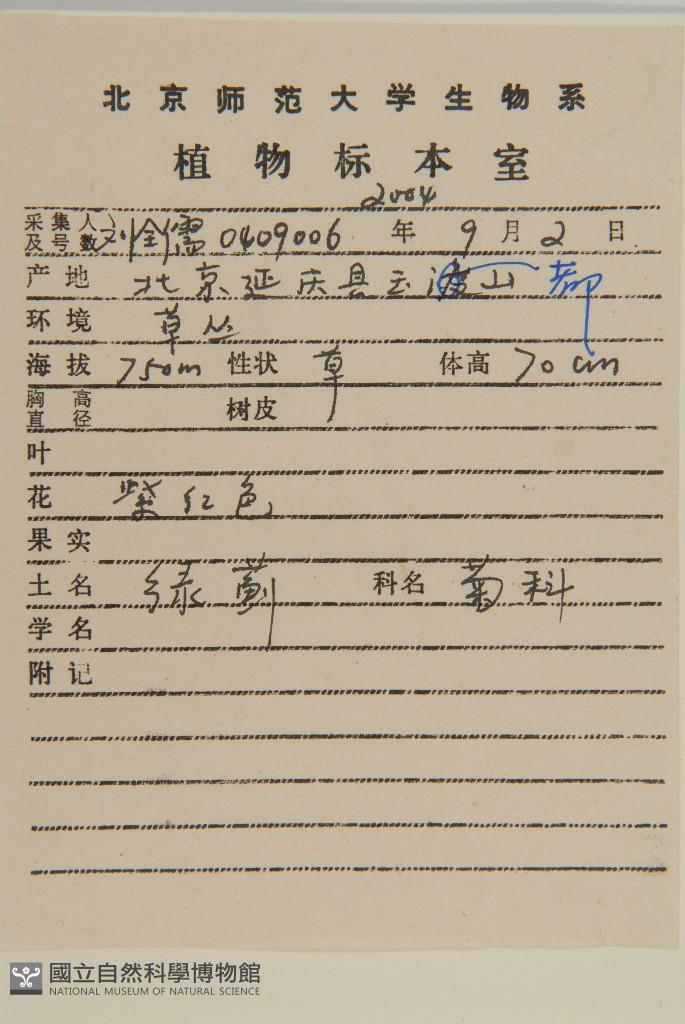 北京师范大学生物系
植物标本室
2004
采集人及号数 刘全儒 0409006 年 9 月 2 日
产地 北京延庆县玉渡山 都
环境 草丛
海拔 750m 性状 草 体高 70 cm
胸高直径 树皮
叶
花 紫红色
果实
土名 绿蓟 科名 菊科
学名
附记
國立自然科學博物館
NATIONAL MUSEUM OF NATURAL SCIENCE